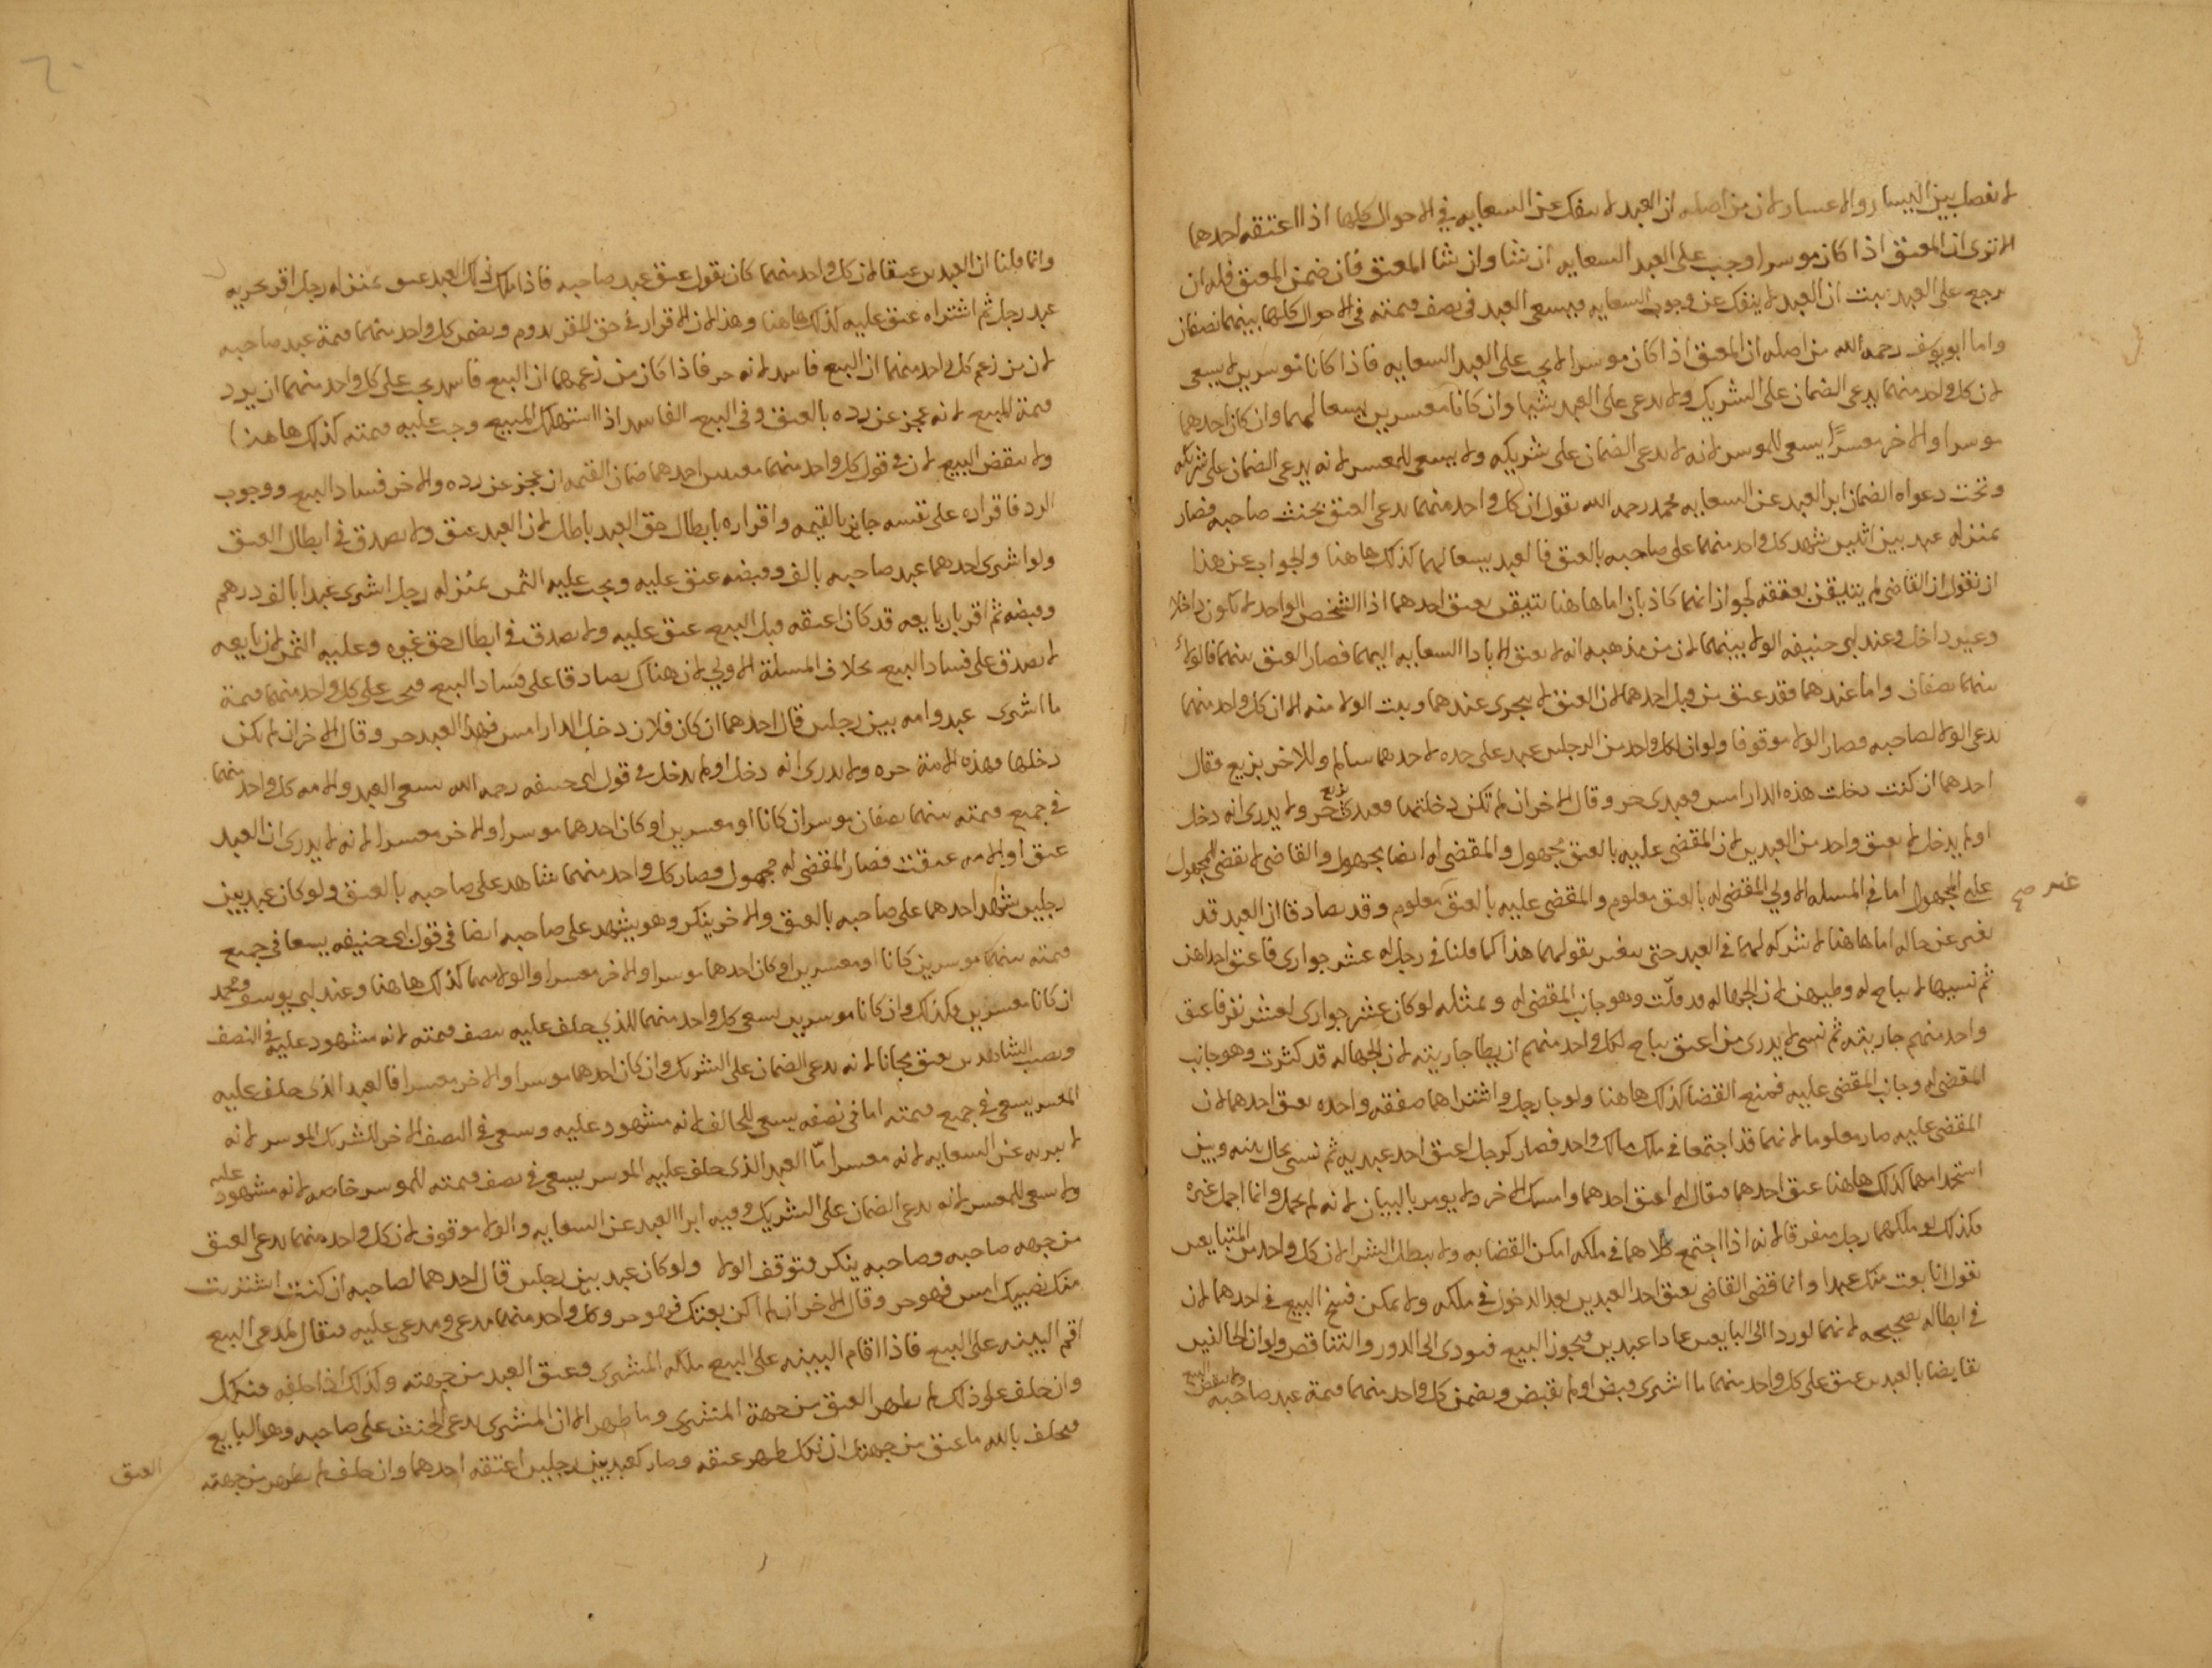 لا يفصل بين اليسار والاعسار لان من اصله ان العبد لا ينفك عن السعايه في الاحوال كلها اذا اعتقه احدهما
الا ترى ان المعتق اذا كان موسرا وجب على العبد السعايه ان شا وان شا المعتق فان ضمن المعتق فله ان
يرجع على العبد ثبت ان العبد لا ينفك عن وجوب السعايه فيسعى العبد في نصف قيمته في الاحوال كلها بينهما نصفان
واما ابو يوسف رحمه الله من اصله ان المعتق اذا كان موسرا لا يجب على العبد السعايه فاذا كانا موسرين لا يسعى
لان كل واحد منهما يدعى الضمان على الشريك ولا يدعى على العبد شيا وان كانا معسرين يسعا لهما وان كان احدهما
موسرا والاخر معسرًا يسعى للموسر لانه لا يدعى الضمان على شريكه ولا يسعى للمعسر لانه يدعى الضمان على شريكه
وتحت دعواه الضمان ابرا العبد عن السعايه محمد رحمه الله يقول ان كل واحد منهما يدعى العتق بحنث صاحبه فصار
بمنزله عبد بين اثنين شهد كل واحد منهما على صاحبه بالعتق فالعبد يسعا لهما كذلك هاهنا والجواب عن هذا
ان نقول ان القاضى لم يتيقن بعتقه لجواز انهما كاذبان اما هاهنا تيقن بعتق احدهما اذ الشخص الواحد لا يكون داخلا
وغير داخل وعند ابي حنيفه الولا بينهما لان من مذهبه انه لا يعتق الا بادا السعايه اليهما فصار العتق منهما فالولا
بينهما نصفان واما عندهما فقد عتق من قبل احدهما لان العتق لا يتجزى عندهما ويثبت الولا منه الا ان كل واحد منهما
يدعى الولا لصاحبه فصار الولا موقوفا ولو ان لكل واحد من الرجلين عبد على حده لاحدهما سالم وللاخر بزيع فقال
احدهما ان كنت دخلت هذه الدار امس فعبدى حر وقال الاخر ان لم تكن دخلتها فعبدى بزيع حر ولا يدرى انه دخل
او لم يدخل لا يعتق واحد من العبدين لان المقضى عليه بالعتق مجهول والمقضى له ايضا مجهول والقاضى لا يقضى لمجهول
على المجهول اما في المسله الاولى المقضى له بالعتق معلوم والمقضى عليه بالعتق معلوم وقد تصادقا ان العبد قد
تغير عن حاله اما هاهنا لا شركه لهما في العبد حتى يتغير بقولهما هذا كما قلنا في رجل له عشر جوارى فاعتق احداهن
ثم نسيها لا يباح له وطيهن لان الجهاله قد قلّت وهو جانب المقضى له وبمثله لو كان عشر جوارى لعشر نفر فاعتق
واحد منهم جاريته ثم نسى لا يدرى من اعتق يباح لكل واحد منهم ان يطا جاريته لان الجهاله قد كثرت وهو جانب
المقضى له وجانب المقضى عليه فمنع القضا كذلك هاهنا ولو جا رجل واشتراهما صفقه واحده يعتق احدهما لان
المقضى عليه صار معلوما لانهما قد اجتمعا في ملك مالك واحد فصار كرجل اعتق احد عبديه ثم نسى يحال بينه وبين
استخدامهما كذلك هاهنا عتق احدهما فيقال له اعتق احدهما وامسك الاخر ولا يومر بالبيان لانه لم يجمل وانما اجمل غيره
فكذلك لو ملكهما رجل متفرقا لانه اذا اجتمع كلاهما في ملكه امكن القضا به ولا يبطل الشرا لان كل واحد من المتبايعين
يقول انا بعت منك عبدا وانما قضى القاضى بعتق احد العبدين بعد الدخول في ملكه ولا يمكن فسخ البيع في احدهما لان
في ابطاله تصحيحه لانهما لو ردا الى البايعين عادا عبدين فيجوز البيع فيودى الى الدور والتناقص ولو ان الحالفين
تقايضا بالعبدين عتق على كل واحد منهما ما اشترى قبض او لم يقبض ويضمن كل واحد منهما قيمة عبد صاحبه ولا ينقض البيع
غير صح
وانما قلنا ان العبدين عتقا لان كل واحد منهما كان يقول عتق عبد صاحبه فاذا ملك ذلك العبد عتق بمنزله رجل اقر بحريه
عبد رجل ثم اشتراه عتق عليه كذلك هاهنا وهذا لان الاقرار في حق المقر يدوم ويضمن كل واحد منهما قيمة عبد صاحبه
لان من زعم كل واحد منهما ان البيع فاسد لانه حر فاذا كان من زعمهما ان البيع فاسد يجب على كل واحد منهما ان يرد
قيمة المبيع لانه عجز عن رده بالعتق وفي البيع الفاسد اذا استهلك المبيع وجب عليه قيمته كذلك هاهنا
ولا ينقض البيع لان في قول كل واحد منهما معنيين احدهما ضمان القيمه ان عجز عن رده والاخر فساد البيع ووجوب
الرد فاقراره على نفسه جايز بالقيمه واقراره بابطال حق العبد باطل لان العبد عتق ولا يصدق في ابطال العتق
ولو اشترى احدهما عبد صاحبه بالف وقبضه عتق عليه ويجب عليه الثمن بمنزله رجل اشترى عبدا بالف درهم
وقبضه ثم اقر بان بايعه قد كان اعتقه قبل البيع عتق عليه ولا يصدق في ابطال حق غيره وعليه الثمن لان بايعه
لا يصدق على فساد البيع بخلاف المسلة الاولى لان هناك تصادقا على فساد البيع فيجب على كل واحد منهما قيمة
ما اشترى عبد وامه بين رجلين قال احدهما ان كان فلان دخل الدار امس فهذا العبد حر وقال الاخر ان لم يكن
دخلها فهذه الامة حره ولا يدرى انه دخل او لم يدخل في قول ابى حنيفه رحمه الله يسعى العبد والامه كل واحد منهما
في جميع قيمته بينهما نصفان موسران كانا او معسرين او كان احدهما موسرا والاخر معسرا لانه لا يدرى ان العبد
عتق او الامه عتقت فصار المقضى له مجهول وصار كل واحد منهما شاهد على صاحبه بالعتق ولو كان عبد بين
رجلين شهد احدهما على صاحبه بالعتق والاخر ينكر وهو يشهد على صاحبه ايضا في قول ابى حنيفه يسعا في جميع
قيمته بينهما موسرين كانا او معسرين او كان احدهما موسرا والاخر معسرا والولا بينهما كذلك هاهنا وعند ابى يوسف ومحمد
ان كانا معسرين فكذلك وان كانا موسرين يسعى كل واحد منهما للذي حلف عليه بنصف قيمته لانه مشهود عليه في النصف
ونصيب الشاهد بن يعتق مجانا لانه يدعى الضمان على الشريك وان كان احدهما موسرا والاخر معسرا فالعبد الذى حلف عليه
المعسر يسعى في جميع قيمته اما في نصفه يسعى للحالف لانه مشهود عليه وسعى في النصف الاخر للشريك الموسر لانه
لا يبريه عن السعايه لانه معسر امّا العبد الذى حلف عليه الموسر يسعى في نصف قيمته للموسر خاصه لانه مشهود عليه
ولا يسعى للمعسر لانه يدعى الضمان على الشريك وفيه ابرا العبد عن السعايه والولا موقوف لان كل واحد منهما يدعى العتق
من جهه صاحبه وصاحبه ينكر فتوقف الولا ولو كان عبد بين رجلين قال احدهما لصاحبه ان كنت اشتريت
منك نصيبك امس فهو حر وقال الاخر ان لم اكن بعتك فهو حر وكل واحد منهما مدعى ومدعى عليه فيقال لمدعى البيع
اقم البينه على البيع فاذا اقام البينه على البيع ملكه المشترى وعتق العبد من جهته وكذلك اذا حلفه فنكل
وان حلف على ذلك لم يظهر العتق من جهة المشترى وما ظهر الا ان المشترى يدعى الحنث على صاحبه وهو البايع
فيحلف بالله ما عتق من جهتك ان نكل ظهر عتقه وصار كعبد بين رجلين اعتقه احدهما وان حلف لم يظهر من جهته
العتق